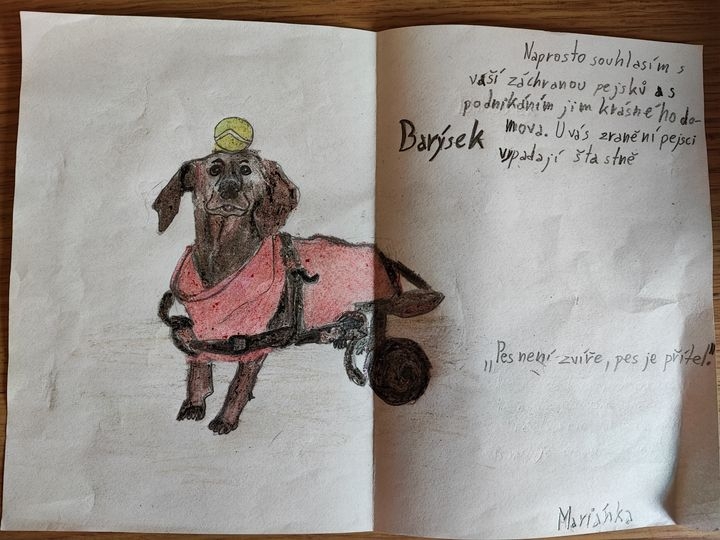 Naprosto souhlasím s
vaší záchranou pejsků a s
podnikáním jim krásného do-
mova. U vás zranění pejsci
vypadají šťastně
Barýsek
„Pes není zvíře, pes je přítel."
Mariánka